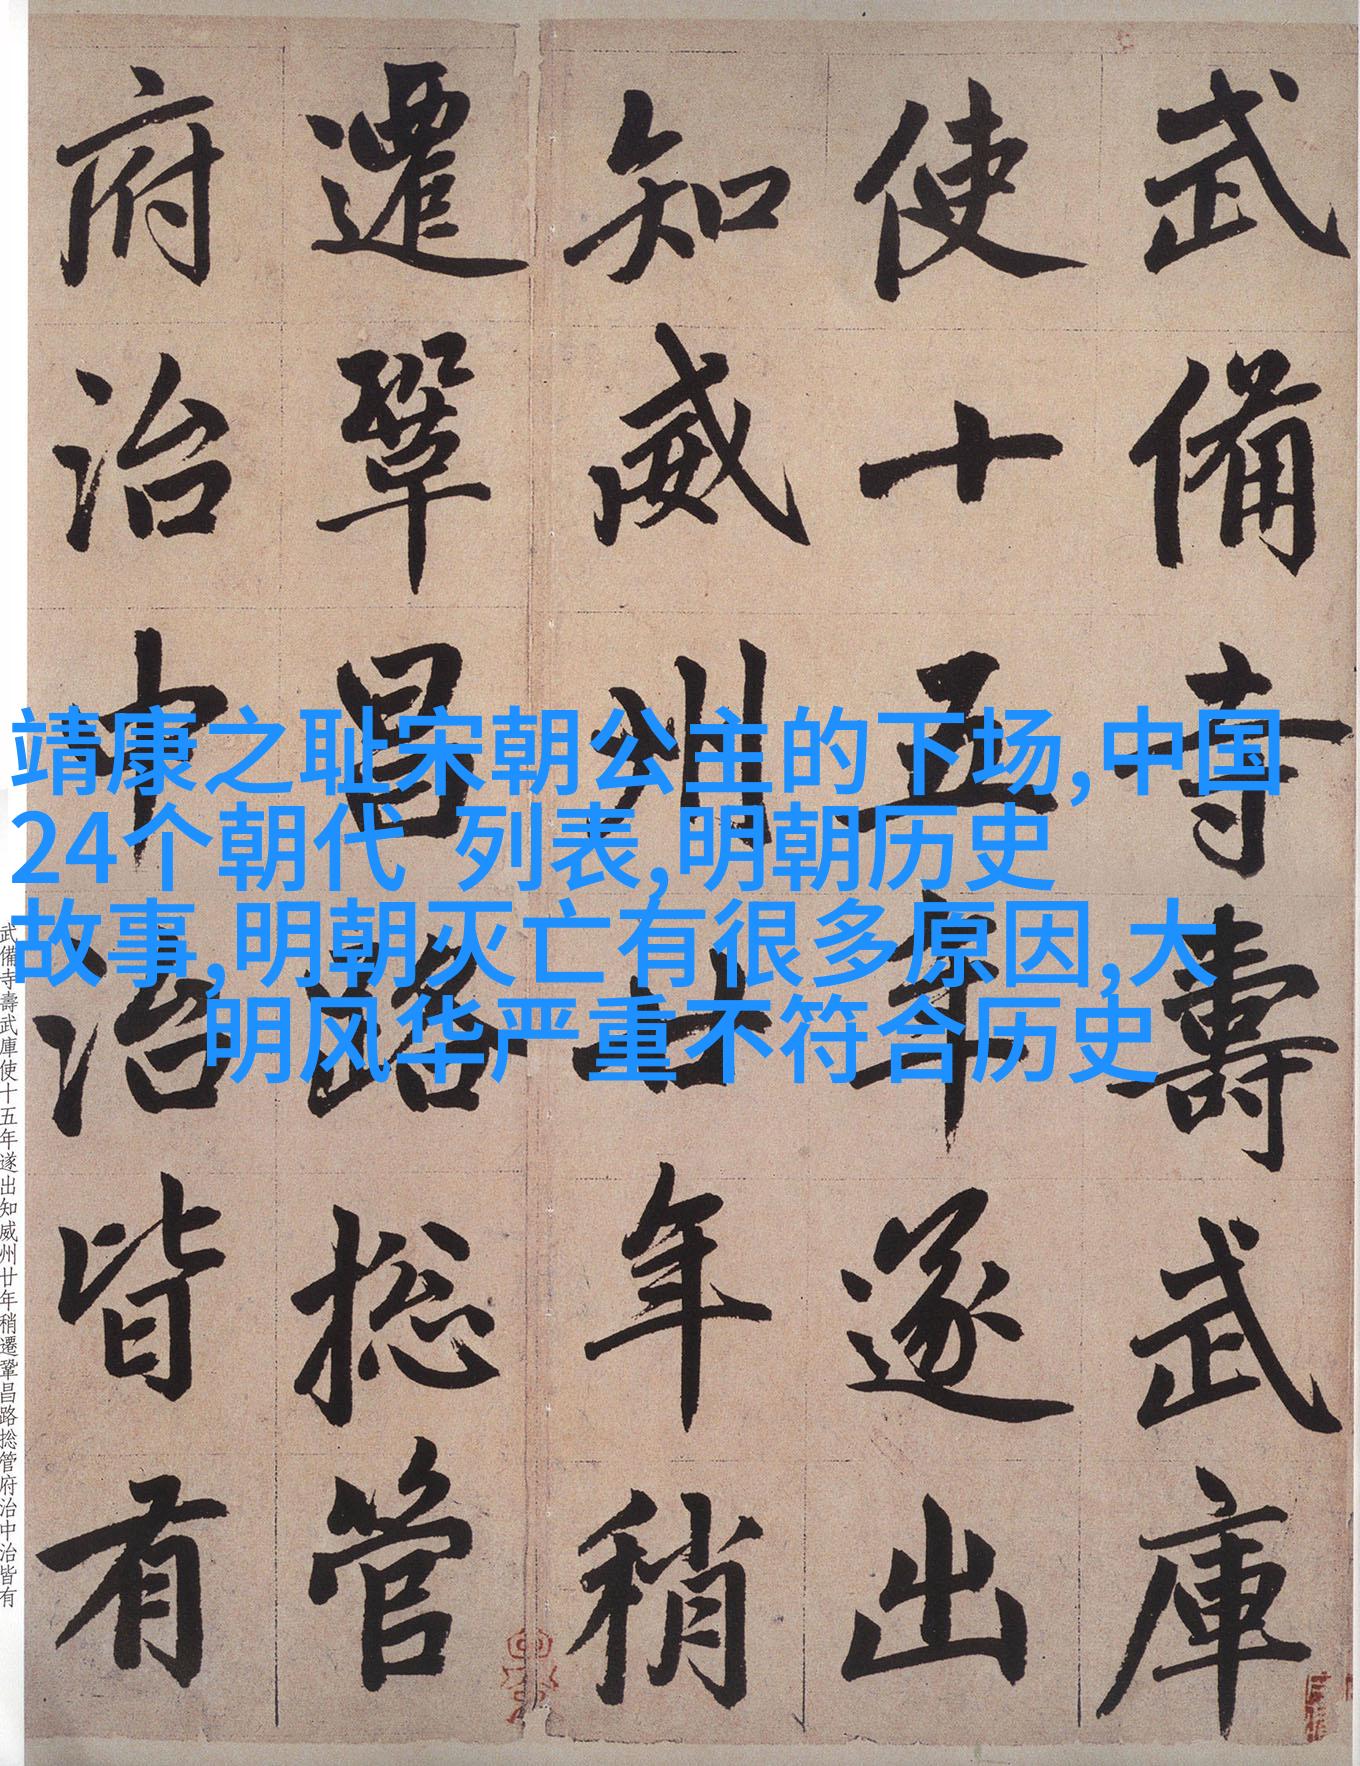 武備寺壽武庫
使十五年遂出
知威州廿年稍
遷鞏昌路捴管
府治中治皆有
靖康之耻宋朝公主的下场,中国
24个朝代 列表,明朝历史
故事,明朝灭亡有很多原因,大
明风华严重不符合历史
武備寺壽武庫使十五年遂出知威州廿年稍遷鞏昌路捴管府治中治皆有